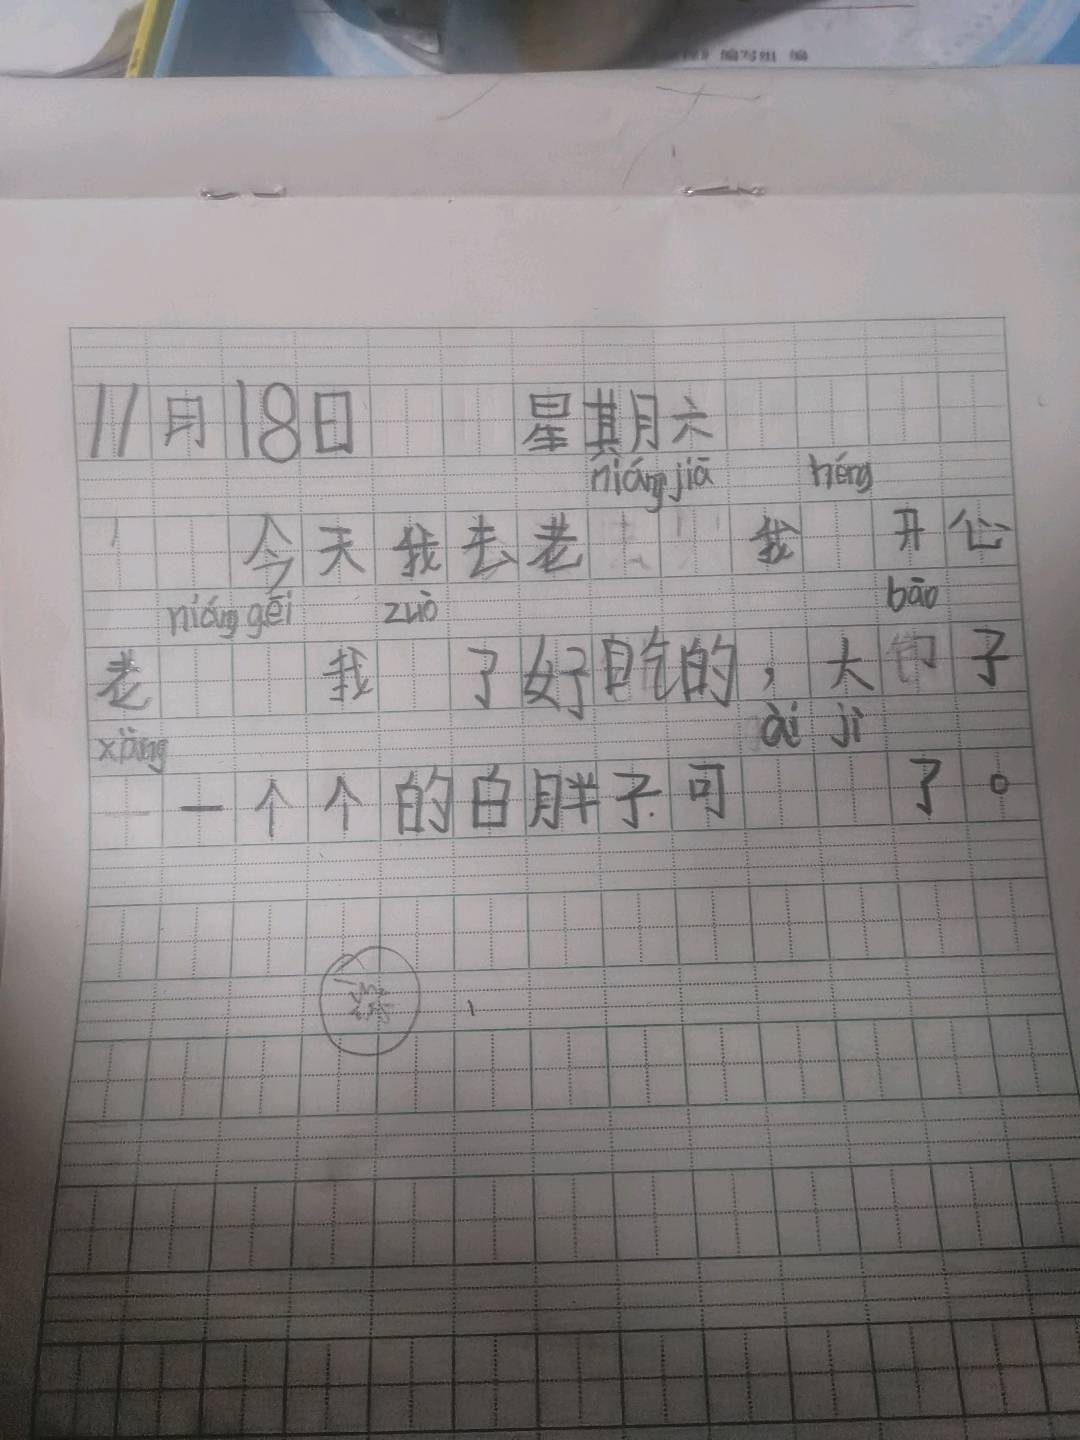 11月18日 星期六
niáng jiā héng
今天我去老 我 开心
niáng gěi zuò bāo
老 我 了好吃的，大 子
xiàng ài jì
一个个的白胖子可 了。